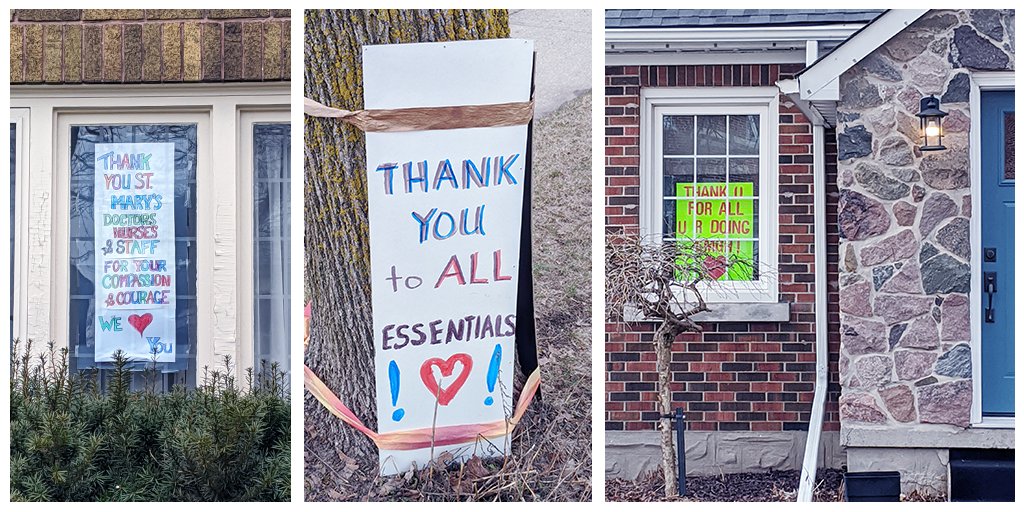 THANK
YOU ST.
MARY'S
DOCTORS
NURSES
& STAFF
FOR YOUR
COMPASSION
& COURAGE
WE
YOU
THANK
YOU
to ALL
ESSENTIALS
! !
THANK U
FOR ALL
U R DOING